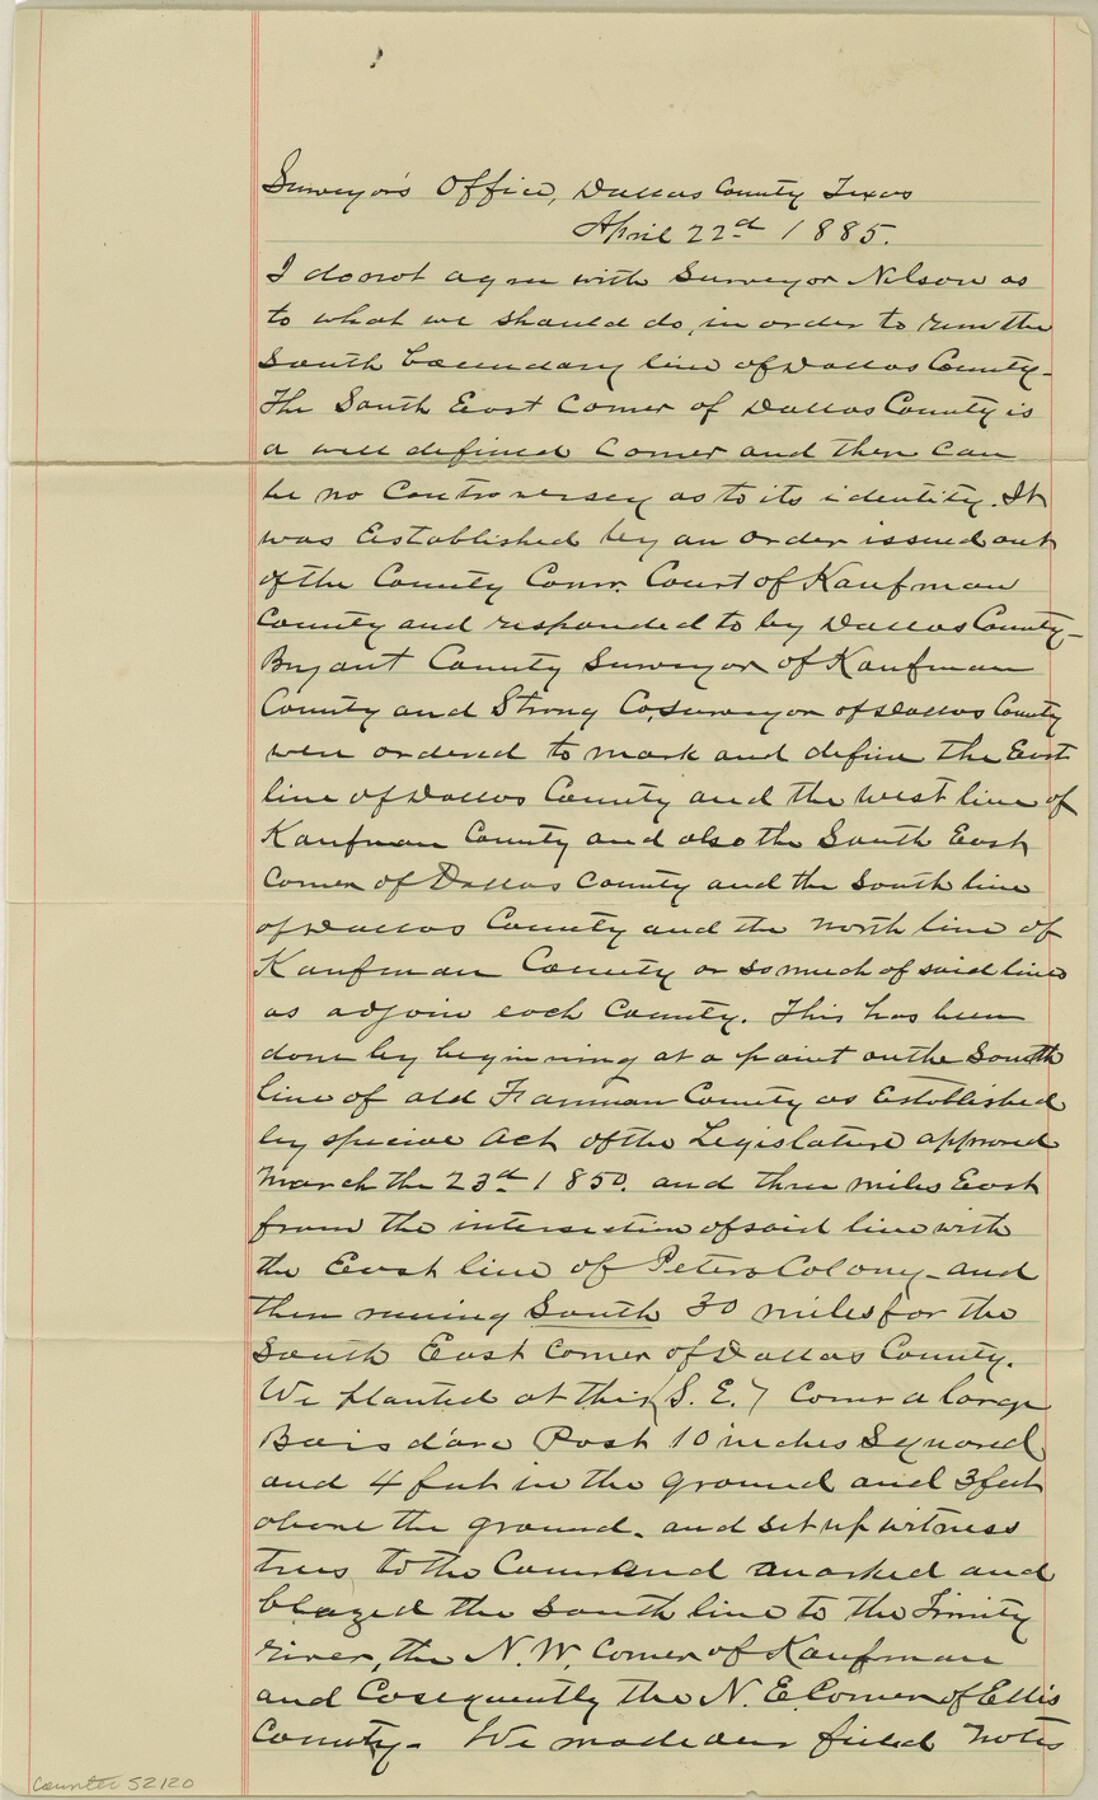 Surveyor's Office, Dallas County Texas
April 22d 1885.
I do not agree with Surveyor Nelson as
to what we should do, in order to run the
South boundary line of Dallas County-
The South East Corner of Dallas County is
a well defined Corner and there can
be no Controversey as to its identity. It
was Established by an order issued out
of the County Comr. Court of Kaufman
County and responded to by Dallas County-
Bryant County Surveyor of Kaufman
County and Strong Co. Surveyor of Dallas County
were ordered to mark and define the East
line of Dallas County and the West line of
Kaufman County and also the South East
Corner of Dallas County and the South line
of Dallas County and the North line of
Kaufman County or so much of said lines
as adjoin each County. This has been
done by beginning at a point on the South
line of old Fannin County as Established
by special Act of the Legislature approved
March the 23d 1850. and three miles East
from the intersection of said line with
the East line of Peters Colony - and
then runing South 30 miles for the
South East Corner of Dallas County.
We planted at this (S. E.) Corner a large
Bois d'arc Post 10 inches Squared
and 4 feet in the ground and 3 feet
above the ground. and set up witness
trees to the Corner and marked and
blazed the South line to the Trinity
river, the N. W. Corner of Kaufman
and Cosequently the N. E. Corner of Ellis
County - We made our field notes
Counter 52120